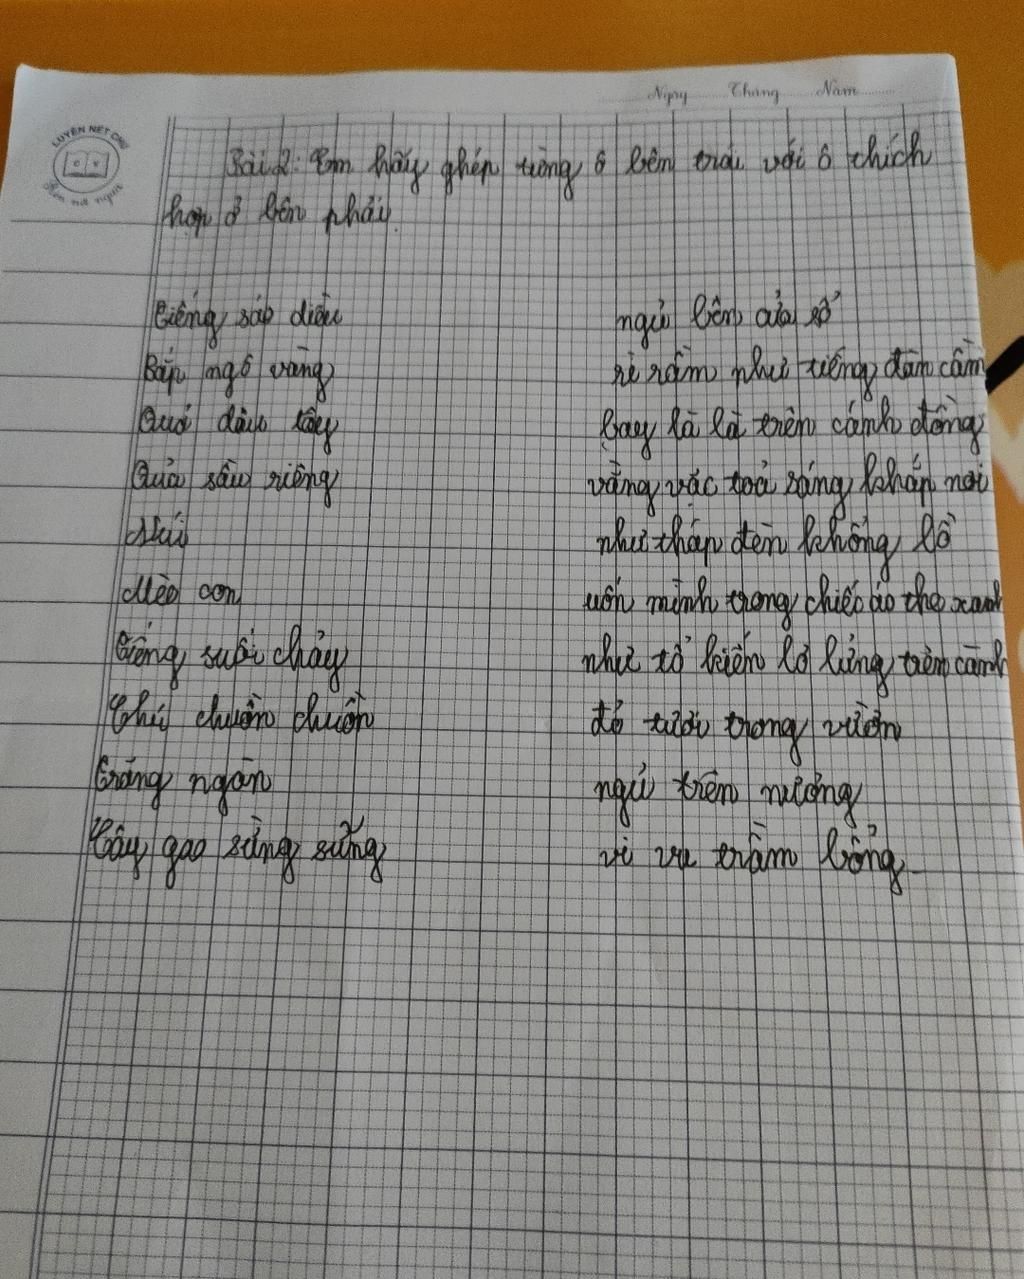 Ngày Tháng Năm
LUYỆN NÉT CHỮ
Rèn nết người
Bài 2: Em hãy ghép từng ô bên trái với ô thích
hợp ở bên phải.
Tiếng sáo diều ngủ bên cửa sổ
Bắp ngô vàng rì rầm như tiếng đàn cầm
Quả dâu tây bay là là trên cánh đồng
Quả sầu riêng vằng vặc toả sáng khắp nơi
Núi như tháp đèn khổng lồ
Mèo con uốn mình trong chiếc áo the xanh
Tiếng suối chảy như tổ kiến lơ lửng trên cành
Chú chuồn chuồn đỏ tươi trong vườn
Trăng ngàn ngủ trên nương
Cây gạo sừng sững vi vu trầm bổng